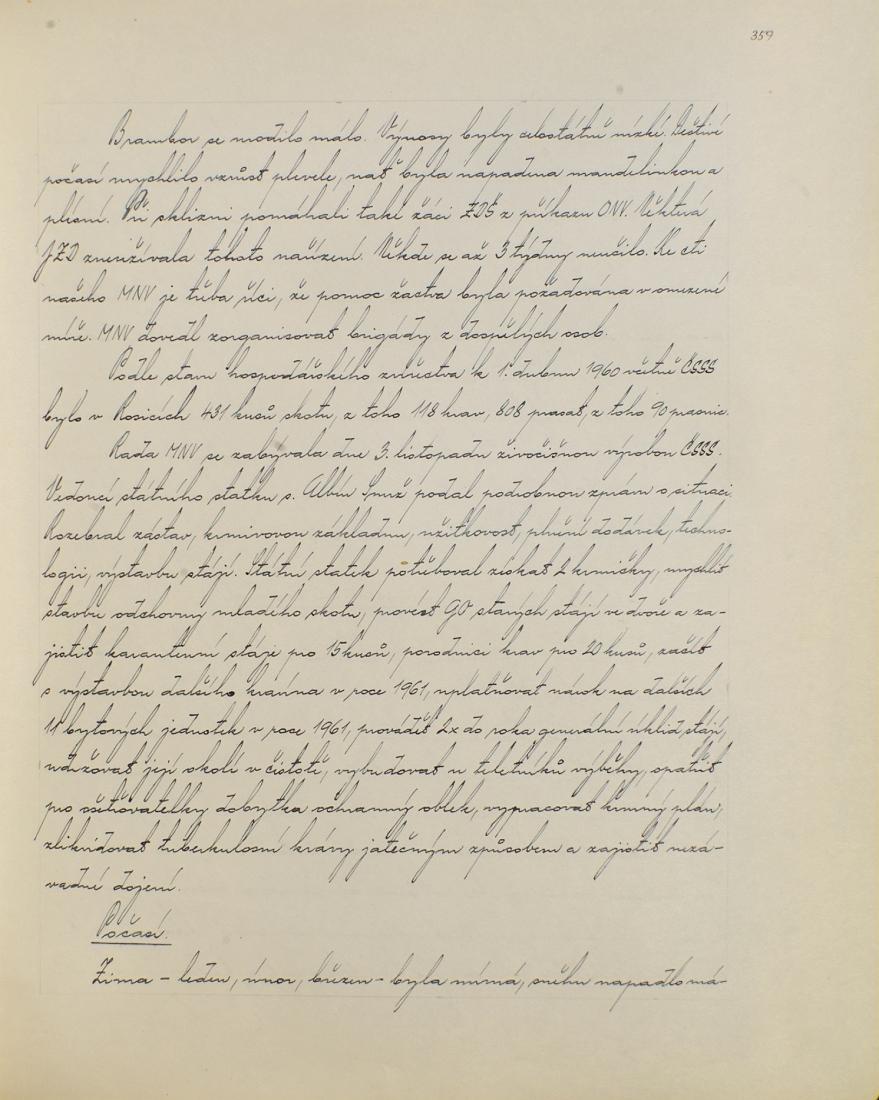 359
Brambor se urodilo málo. Výnosy byly celostátně nízké. Deštivé
počasí urychlilo vzrůst plevele, nať byla napadena mandelinkou a
plísní. Při sklizni pomáhali také žáci ZDŠ z příkazu ONV. Některá
JZD zneužívala tohoto nařízení. Někde se až 3 týdny neučilo. Ke cti
našeho MNV je třeba říci, že pomoc žactva byla požadována v omezené
míře. MNV dovedl zorganisovat brigády z dospělých osob.
Podle stavu hospodářského zvířectva k 1. dubnu 1960 včetně ČSSS
bylo v Rosicích 431 kusů skotu, z toho 118 krav, 808 prasat, z toho 90 prasnic.
Rada MNV se zabývala dne 3. listopadu živočišnou výrobou ČSSS.
Vedoucí státního statku s. Albín Smrž podal podrobnou zprávu o situaci.
Rozebral zástav, krmivovou základnu, užitkovost, plnění dodávek, techno-
logii, výstavbu stájí. Státní statek potřeboval získat 2 krmičky, urychlit
stavbu odchovny mladého skotu, provést GO starých stájí ve dvoře a za-
jistit karantenní stáje pro 15 kusů, porodnici krav pro 20 kusů, začít
s výstavbou dalšího kravína v roce 1961, uplatňovat nárok na dalších
11 bytových jednotek v roce 1961, provádět 2x do roka generální úklid stájí,
udržovat její okolí v čistotě, vybudovat u teletníků výběhy, opatřit
pro ošetřovatelky dobytka ochranný oblek, vypracovat krmný plán,
zlikvidovat tuberkulosní krávy jatečným způsobem a zajistit nezá-
vadné dojení.
Počasí.
Zima - leden, únor, březen - byla mírná, sněhu napadlo má-